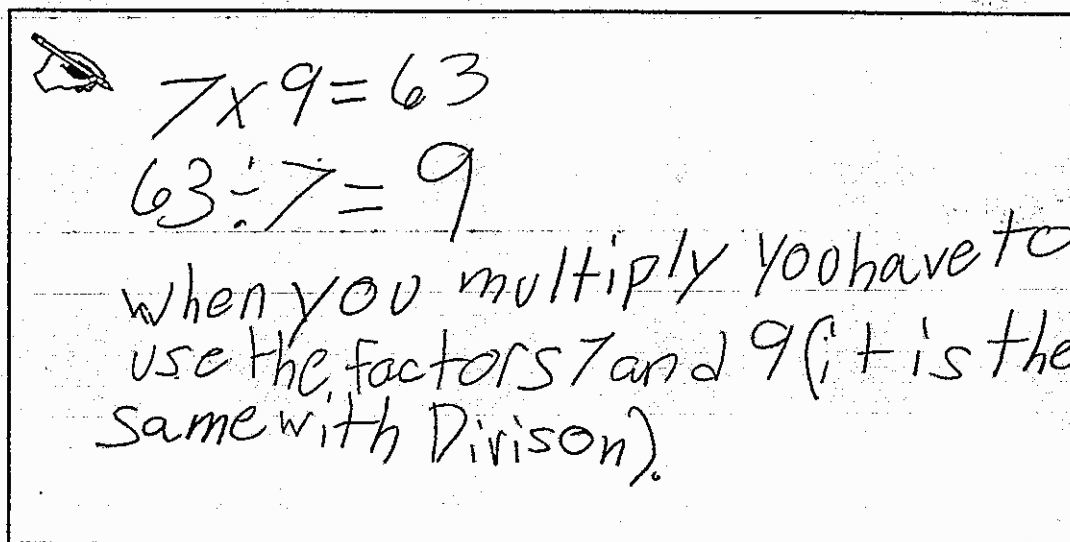 7x9=63
63÷7=9
when you multiply you have to
use the factors 7 and 9 (it is the
same with Divison).